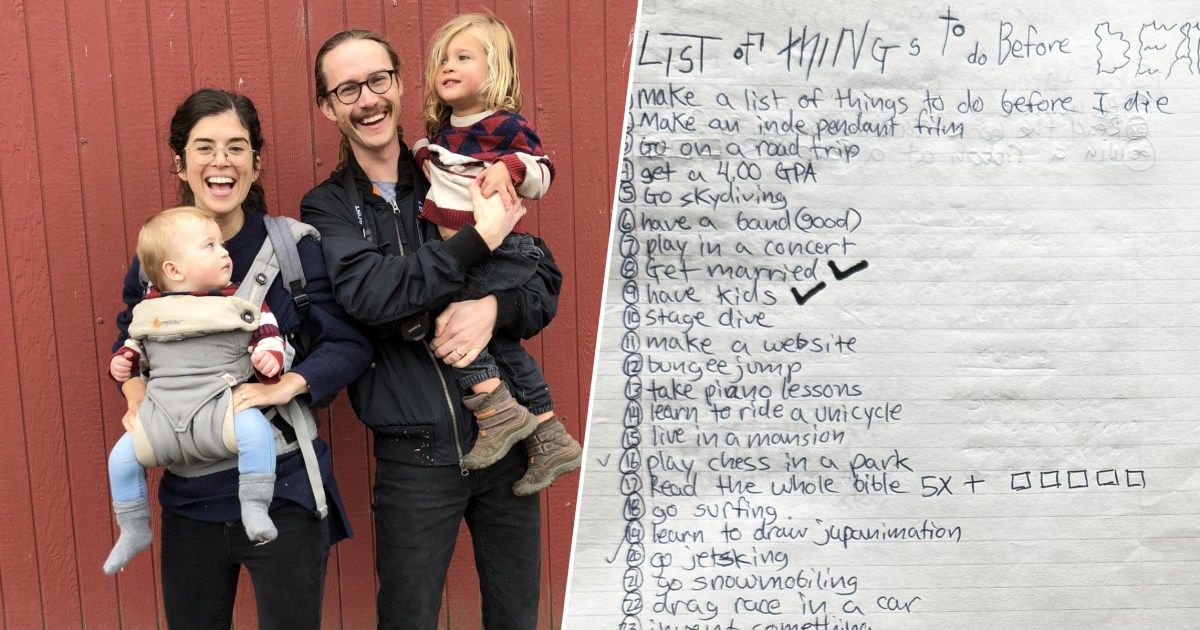 LIST of THINGs to do Before
make a list of things to do before I die
Make an independant film
Go on a road trip
get a 4.00 GPA
5 Go skydiving
6 have a band (good)
7 play in a concert
8 Get married ✓
9 have kids ✓
10 stage dive
11 make a website
12 bungee jump
13 take piano lessons
14 learn to ride a unicycle
15 live in a mansion
✓ 16 play chess in a park
17 Read the whole bible 5X + □□□□□
18 go surfing
19 learn to draw japanimation
✓ 20 go jetsking
21 go snowmobiling
22 drag race in a car
23 invent something